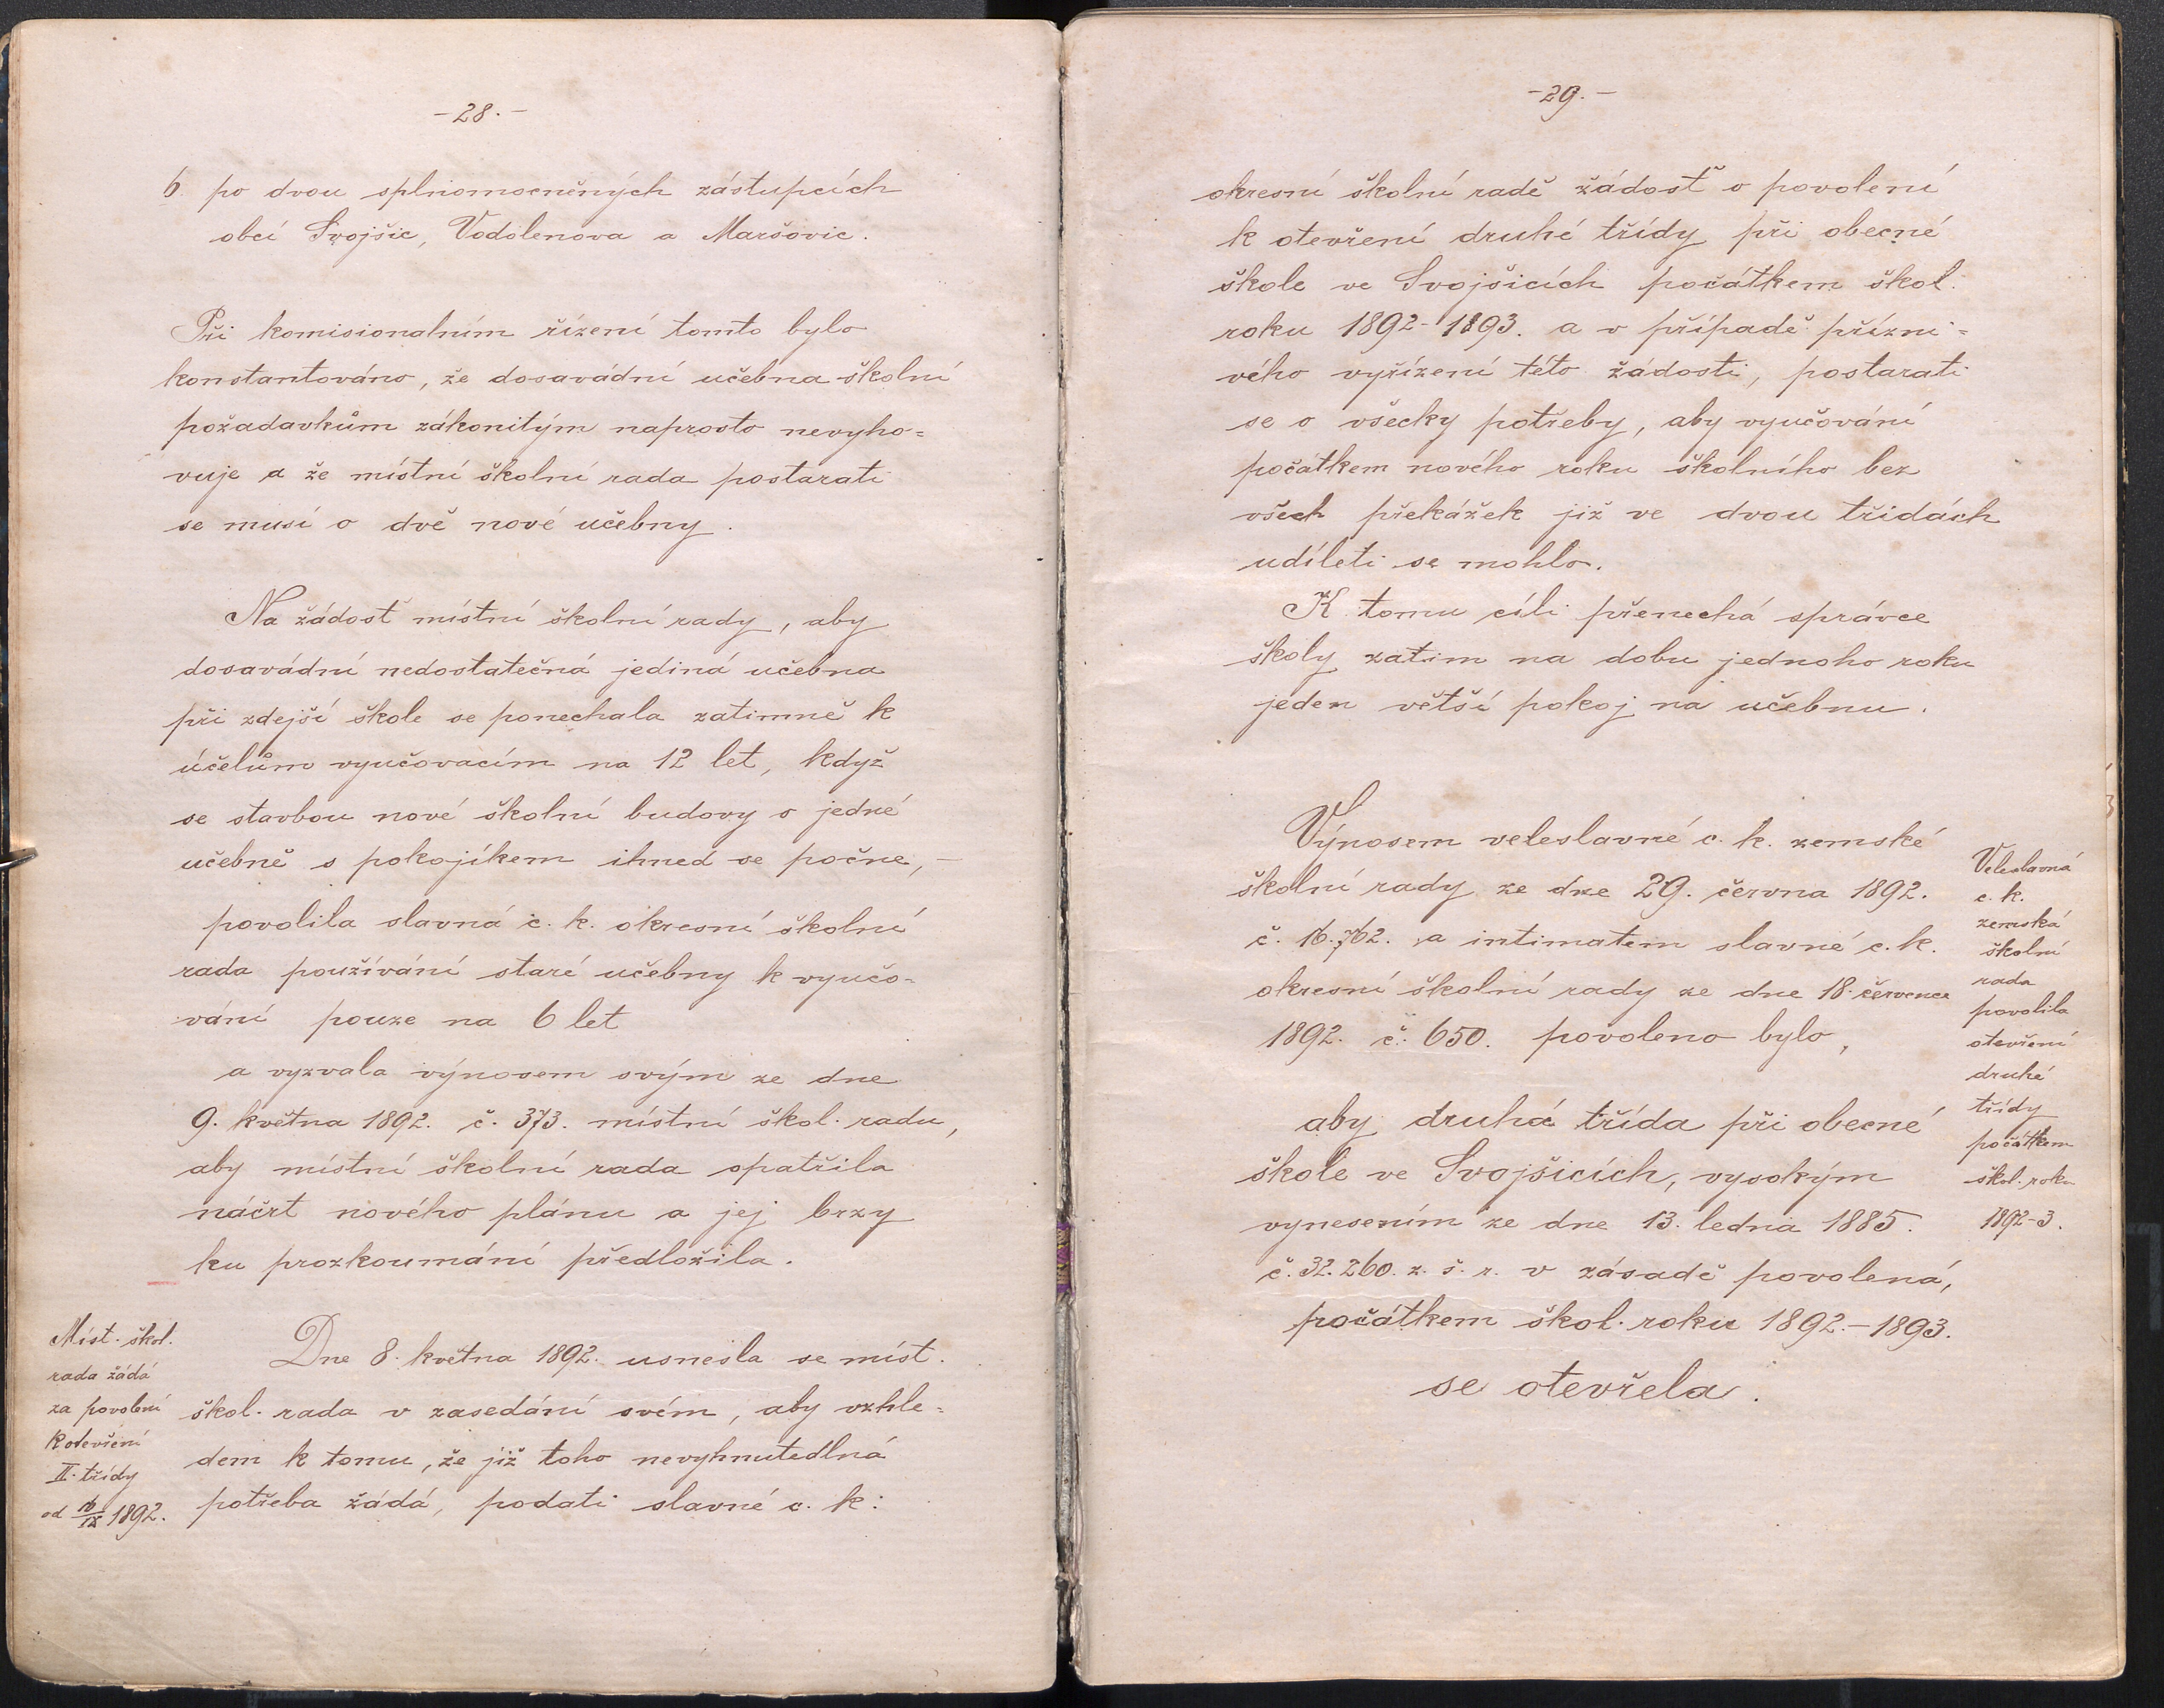 -28.-
6. po dvou splnomocněných zástupcích
obcí Svojšic, Vodolenova a Maršovic.
Při komisionalním řízení tomto bylo
konstantováno, že dosavádní učebna školní
požadavkům zákonitým naprosto nevyho=
vuje a že místní školní rada postarati
se musí o dvě nové učebny.
Na žádosť místní školní rady, aby
dosavádní nedostatečná jediná učebna
při zdejší škole se ponechala zatimně k
účelům vyučovacím na 12 let, když
se stavbou nové školní budovy o jedné
učebně s pokojíkem ihned se počne, -
povolila slavná c. k. okresní školní
rada používání staré učebny k vyučo-
vání pouze na 6 let
a vyzvala výnosem svým ze dne
9. května 1892. č. 373. místní škol. radu,
aby místní školní rada opatřila
náčrt nového plánu a jej brzy
ku prozkoumání předložila.
Míst. škol.
rada žádá
za povolení
k otevření
II. třídy
od 16/IX 1892.
Dne 8. května 1892. usnesla se míst.
škol. rada v zasedání svém, aby vzhle=
dem k tomu, že již toho nevyhnutedlná
potřeba žádá, podati slavné c. k.
-29.-
okresní školní radě žádosť o povolení
k otevření druhé třídy při obecné
škole ve Svojšicích počátkem škol.
roku 1892-1893. a v případě přízni=
vého vyřízení této žádosti, postarati
se o všecky potřeby, aby vyučování
počátkem nového roku školního bez
všech překážek již ve dvou třídách
udíleti se mohlo.
K tomu cíli přenechá správce
školy zatim na dobu jednoho roku
jeden větší pokoj na učebnu.
Výnosem veleslavné c. k. zemské
školní rady ze dne 29. června 1892.
č. 16.762. a intimatem slavné c. k.
okresní školní rady ze dne 18. července
1892. č. 650. povoleno bylo,
aby druhá třída při obecné
škole ve Svojšicích, vysokým
vynesením ze dne 13. ledna 1885.
č. 32.260. z. š. r. v zásadě povolená,
počátkem škol. roku 1892.-1893.
se otevřela.
Veleslavná
c. k.
zemská
školní
rada
povolila
otevření
druhé
třídy
počátkem
škol. roku
1892-3.